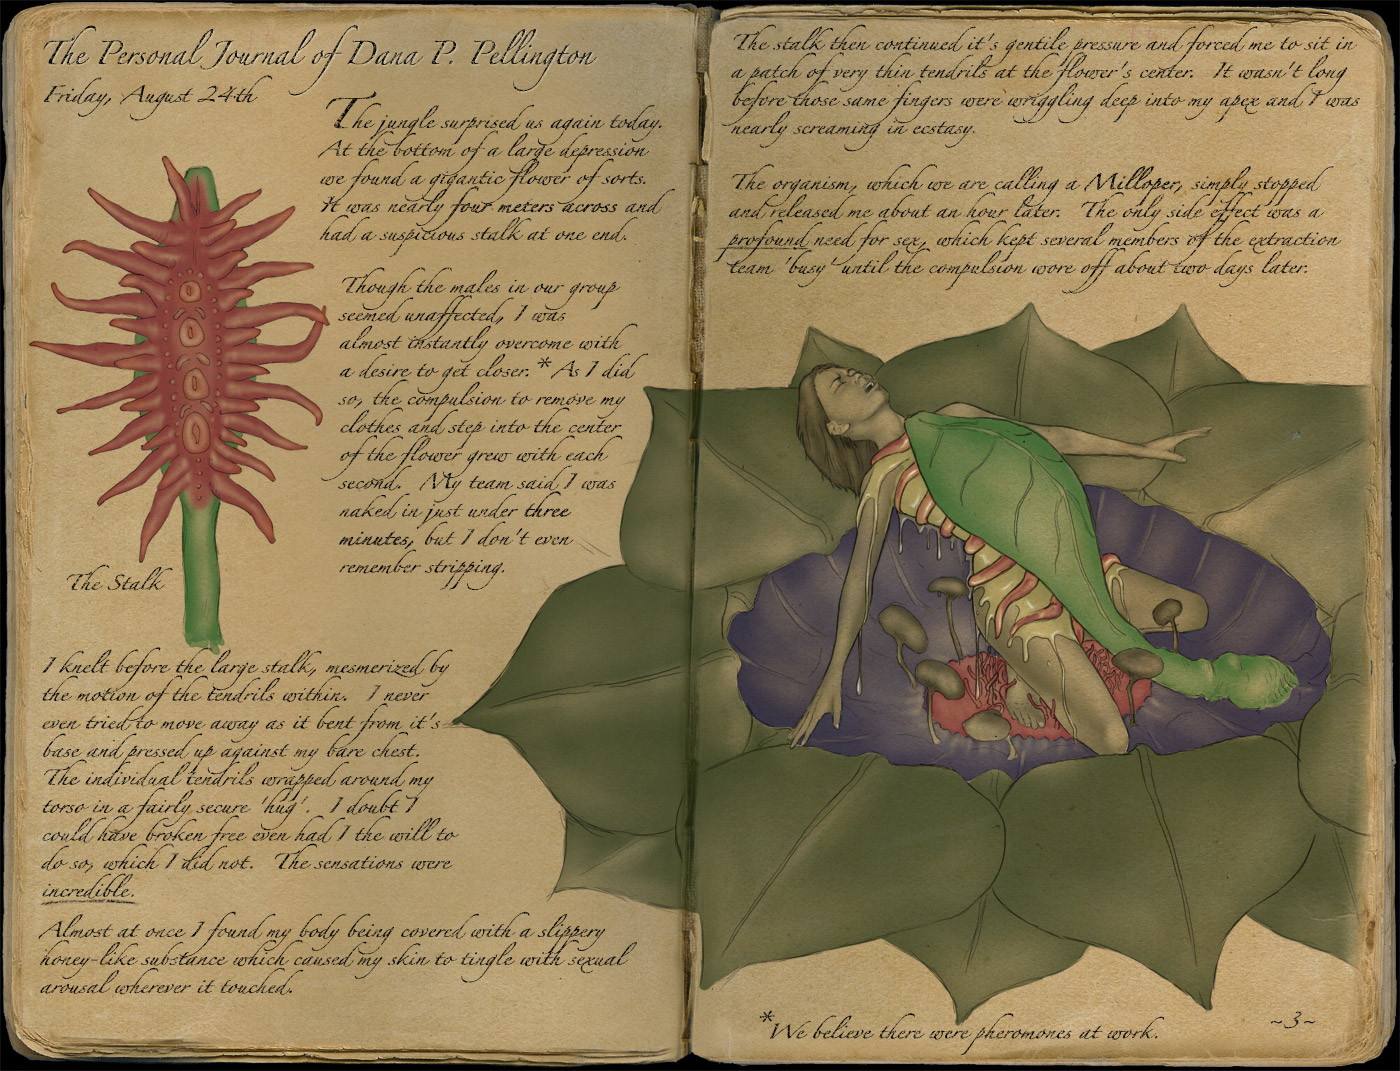 The Personal Journal of Dana P. Pellington
Friday, August 24th
The jungle surprised us again today.
At the bottom of a large depression
we found a gigantic flower of sorts.
It was nearly four meters across and
had a suspicious stalk at one end.
Though the males in our group
seemed unaffected, I was
almost instantly overcome with
a desire to get closer.* As I did
so, the compulsion to remove my
clothes and step into the center
of the flower grew with each
second. My team said I was
naked in just under three
minutes, but I don't even
remember stripping.
The Stalk
I knelt before the large stalk, mesmerized by
the motion of the tendrils within. I never
even tried to move away as it bent from it's
base and pressed up against my bare chest.
The individual tendrils wrapped around my
torso in a fairly secure 'hug'. I doubt I
could have broken free even had I the will to
do so, which I did not. The sensations were
incredible.
Almost at once I found my body being covered with a slippery
honey-like substance which caused my skin to tingle with sexual
arousal wherever it touched.
The stalk then continued it's gentile pressure and forced me to sit in
a patch of very thin tendrils at the flower's center. It wasn't long
before those same fingers were wriggling deep into my apex and I was
nearly screaming in ecstasy.
The organism, which we are calling a Milloper, simply stopped
and released me about an hour later. The only side effect was a
profound need for sex, which kept several members of the extraction
team 'busy' until the compulsion wore off about two days later.
*We believe there were pheromones at work.
~3~